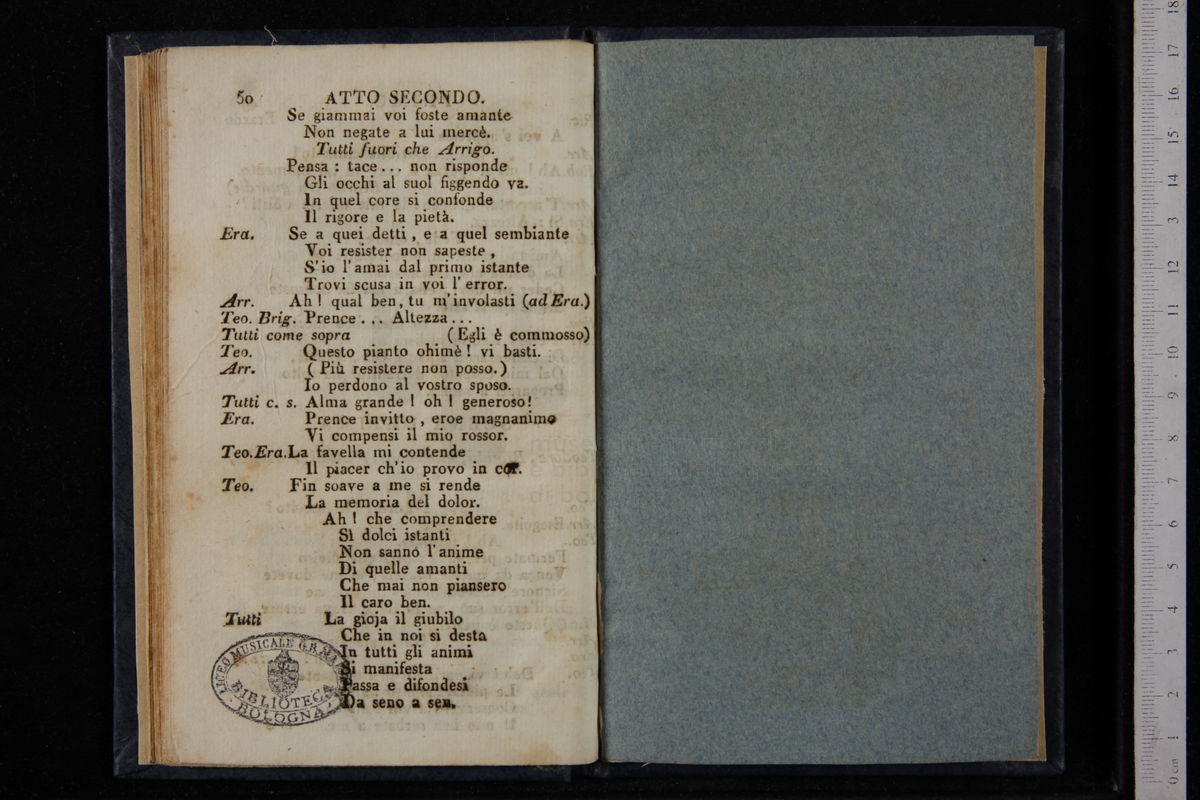 50 ATTO SECONDO.
Se giammai voi foste amante
Non negate a lui mercè.
Tutti fuori che Arrigo.
Pensa : tace... non risponde
Gli occhi al suol figgendo va.
In quel core si confonde
Il rigore e la pietà.
Era. Se a quei detti , e a quel sembiante
Voi resister non sapeste ,
S'io l'amai dal primo istante
Trovi scusa in voi l'error.
Arr. Ah ! qual ben, tu m'involasti (ad Era.)
Teo. Brig. Prence ... Altezza...
Tutti come sopra (Egli è commosso)
Teo. Questo pianto ohimè ! vi basti.
Arr. ( Più resistere non posso.)
Io perdono al vostro sposo.
Tutti c. s. Alma grande ! oh ! generoso!
Era. Prence invitto , eroe magnanimo
Vi compensi il mio rossor.
Teo.Era.La favella mi contende
Il piacer ch'io provo in cor.
Teo. Fin soave a me si rende
La memoria del dolor.
Ah ! che comprendere
Sì dolci istanti
Non sanno l'anime
Di quelle amanti
Che mai non piansero
Il caro ben.
Tutti La gioja il giubilo
Che in noi si desta
In tutti gli animi
Si manifesta
Passa e difondesi
Da seno a sen.
LICEO MUSICALE
BIBLIOTECA
BOLOGNA
0 cm 1 2 3 4 5 6 7 8 9 10 11 12 13 14 15 16 17 18